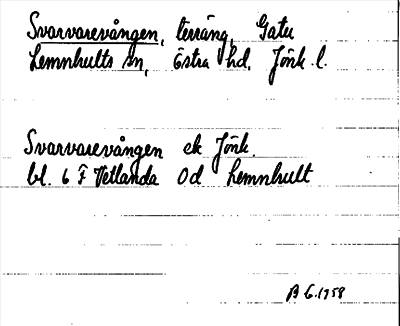 Svarvarevången, terräng, Gatu
Lemnhults sn, Östra hd. Jönk. l.
Svarvarevången ek Jönk.
bl. 6 F Vetlanda Od Lemnhult
B G. 1958